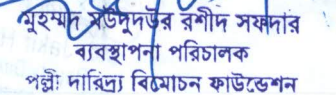 মুহম্মদ মউদুদউর রশীদ সফদার
ব্যবস্থাপনা পরিচালক
পল্লী দারিদ্র্য বিমোচন ফাউন্ডেশন